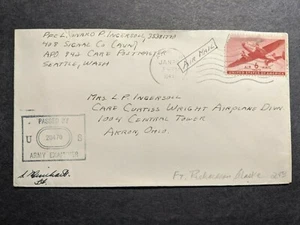 Pvt. Leonard P. Ingersoll, 35381780
408 Signal Co (AVN)
APO 942 Care Postmaster
Seattle, Wash
AIR MAIL
JAN
UNITED STATES OF AMERICA
Mrs. L P. Ingersoll
Care Curtiss Wright Airplane Divn.
1004 Central Tower
Akron, Ohio.
PASSED BY
U S
ARMY EXAMINER
Ft. Richardson Alaska